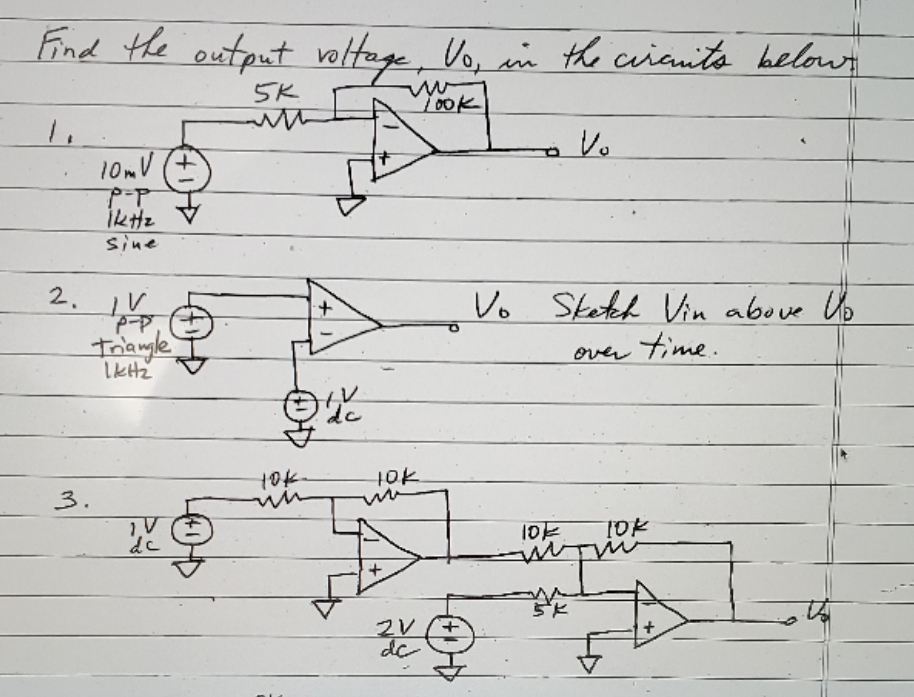 Find the output voltage, Vo, in the circuits below
1.
5K
100K
-
+
Vo
10mV
P-P
1kHz
sine
+
-
2.
1V
P-P
Triangle
1kHz
+
-
+
-
Vo Sketch Vin above Vo
over time.
+
-
1V
dc
3.
10K
10K
1V
dc
+
-
-
+
10K
10K
5K
2V
dc
+
-
-
+
Vo